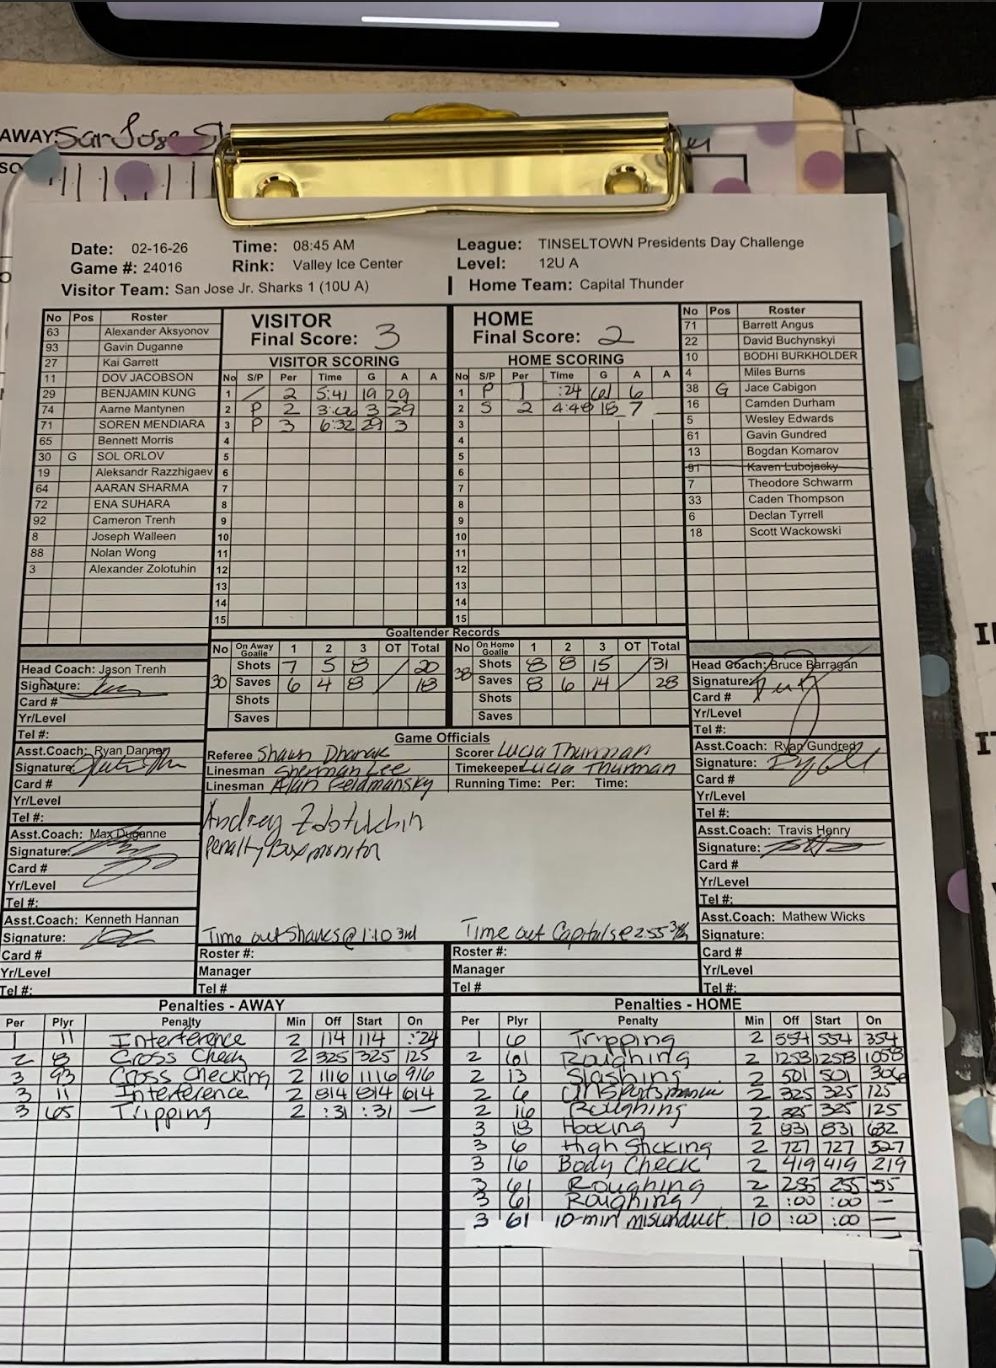 AWAY: San Jose
Date: 02-16-26 Time: 08:45 AM League: TINSELTOWN Presidents Day Challenge
Game #: 24016 Rink: Valley Ice Center Level: 12U A
Visitor Team: San Jose Jr. Sharks 1 (10U A) Home Team: Capital Thunder
No Pos Roster
63 Alexander Aksyonov
93 Gavin Duganne
27 Kai Garrett
11 DOV JACOBSON
29 BENJAMIN KUNG
74 Aarne Mantynen
71 SOREN MENDIARA
65 Bennett Morris
30 G SOL ORLOV
19 Aleksandr Razzhigaev
64 AARAN SHARMA
72 ENA SUHARA
92 Cameron Trenh
8 Joseph Walleen
88 Nolan Wong
3 Alexander Zolotuhin
VISITOR
Final Score: 3
VISITOR SCORING
No S/P Per Time G A A
1 / 2 5:41 19 29
2 P 2 3:06 3 29
3 P 3 6:32 29 3
4
5
6
7
8
9
10
11
12
13
14
15
HOME
Final Score: 2
HOME SCORING
No S/P Per Time G A A
1 P 1 :24 61 6
2 S 2 4:48 18 7
3
4
5
6
7
8
9
10
11
12
13
14
15
No Pos Roster
71 Barrett Angus
22 David Buchynskyi
10 BODHI BURKHOLDER
4 Miles Burns
38 G Jace Cabigon
16 Camden Durham
5 Wesley Edwards
61 Gavin Gundred
13 Bogdan Komarov
91 Kaven Lubojacky
7 Theodore Schwarm
33 Caden Thompson
6 Declan Tyrrell
18 Scott Wackowski
Goaltender Records
No On Away Goalie 1 2 3 OT Total
30 Shots 7 5 8 / 20
Saves 6 4 8 / 18
Shots
Saves
No On Home Goalie 1 2 3 OT Total
38 Shots 8 8 15 / 31
Saves 8 6 14 / 28
Shots
Saves
Head Coach: Jason Trenh
Signature:
Card #
Yr/Level
Tel #:
Asst.Coach: Ryan Dannen
Signature:
Card #
Yr/Level
Tel #:
Asst.Coach: Max Duganne
Signature:
Card #
Yr/Level
Tel #:
Asst.Coach: Kenneth Hannan
Signature:
Card #
Yr/Level
Tel #:
Game Officials
Referee Shawn Dhanak Scorer Lucia Thurman
Linesman Sherman Lee Timekeeper Lucia Thurman
Linesman Alan Feldmansky Running Time: Per: Time:
Andrey Zolotukhin
Penalty Box monitor
Time out Sharks @ 1:10 3rd Time out Capitals @ 2:55 3rd
Roster #: Roster #:
Manager Manager
Tel # Tel #
Head Coach: Bruce Barragan
Signature:
Card #
Yr/Level
Tel #:
Asst.Coach: Ryan Gundred
Signature:
Card #
Yr/Level
Tel #:
Asst.Coach: Travis Henry
Signature:
Card #
Yr/Level
Tel #:
Asst.Coach: Mathew Wicks
Signature:
Card #
Yr/Level
Tel #:
Penalties - AWAY
Per Plyr Penalty Min Off Start On
1 11 Interference 2 114 114 :24
2 Cross Check 2 325 325 125
3 93 Cross Checking 2 1116 1116 916
3 11 Interference 2 814 814 614
3 65 Tripping 2 :31 :31 —
Penalties - HOME
Per Plyr Penalty Min Off Start On
1 6 Tripping 2 554 554 354
2 61 Roughing 2 1258 1258 1058
2 13 Slashing 2 501 501 306
2 6 2 325 325 125
2 16 Roughing 2 325 325 125
3 18 Hooking 2 831 831 632
3 6 High Sticking 2 727 727 527
3 16 Body Check 2 419 419 219
3 61 Roughing 2 255 255 :55
3 61 Roughing 2 :00 :00 —
3 61 10-min misconduct 10 :00 :00 —